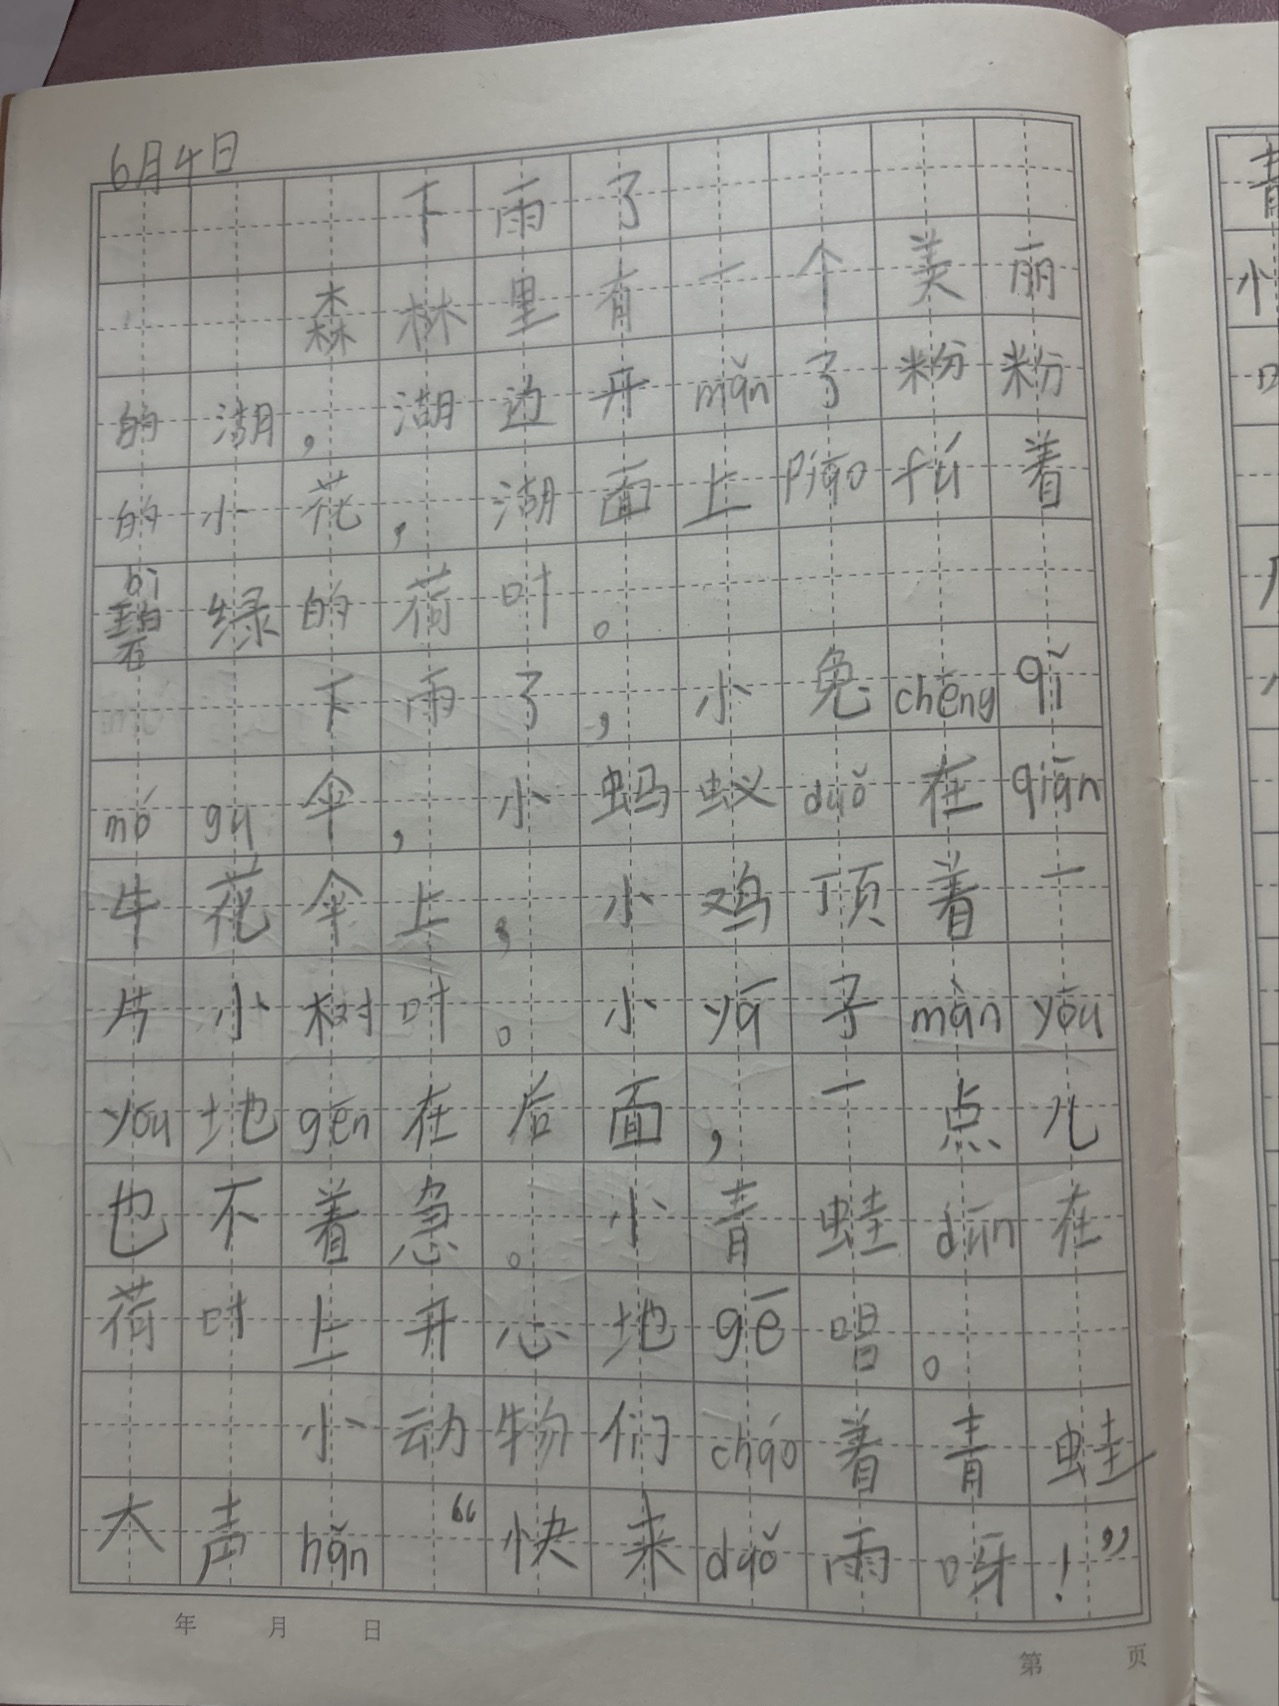 6月4日
下雨了
森林里有一个美丽
的湖，湖边开mǎn了粉粉
的小花，湖面上piāo fú着
bì
碧绿的荷叶。
下雨了，小兔chēng qǐ
mó gu伞，小蚂蚁duǒ在qiān
牛花伞上，小鸡顶着一
片小树叶。小yā子màn yōu
yōu地gēn在后面，一点儿
也不着急。小青蛙dūn在
荷叶上开心地gē唱。
小动物们cháo着青蛙
大声hǎn“快来duǒ雨呀！”
年 月 日
第 页
青